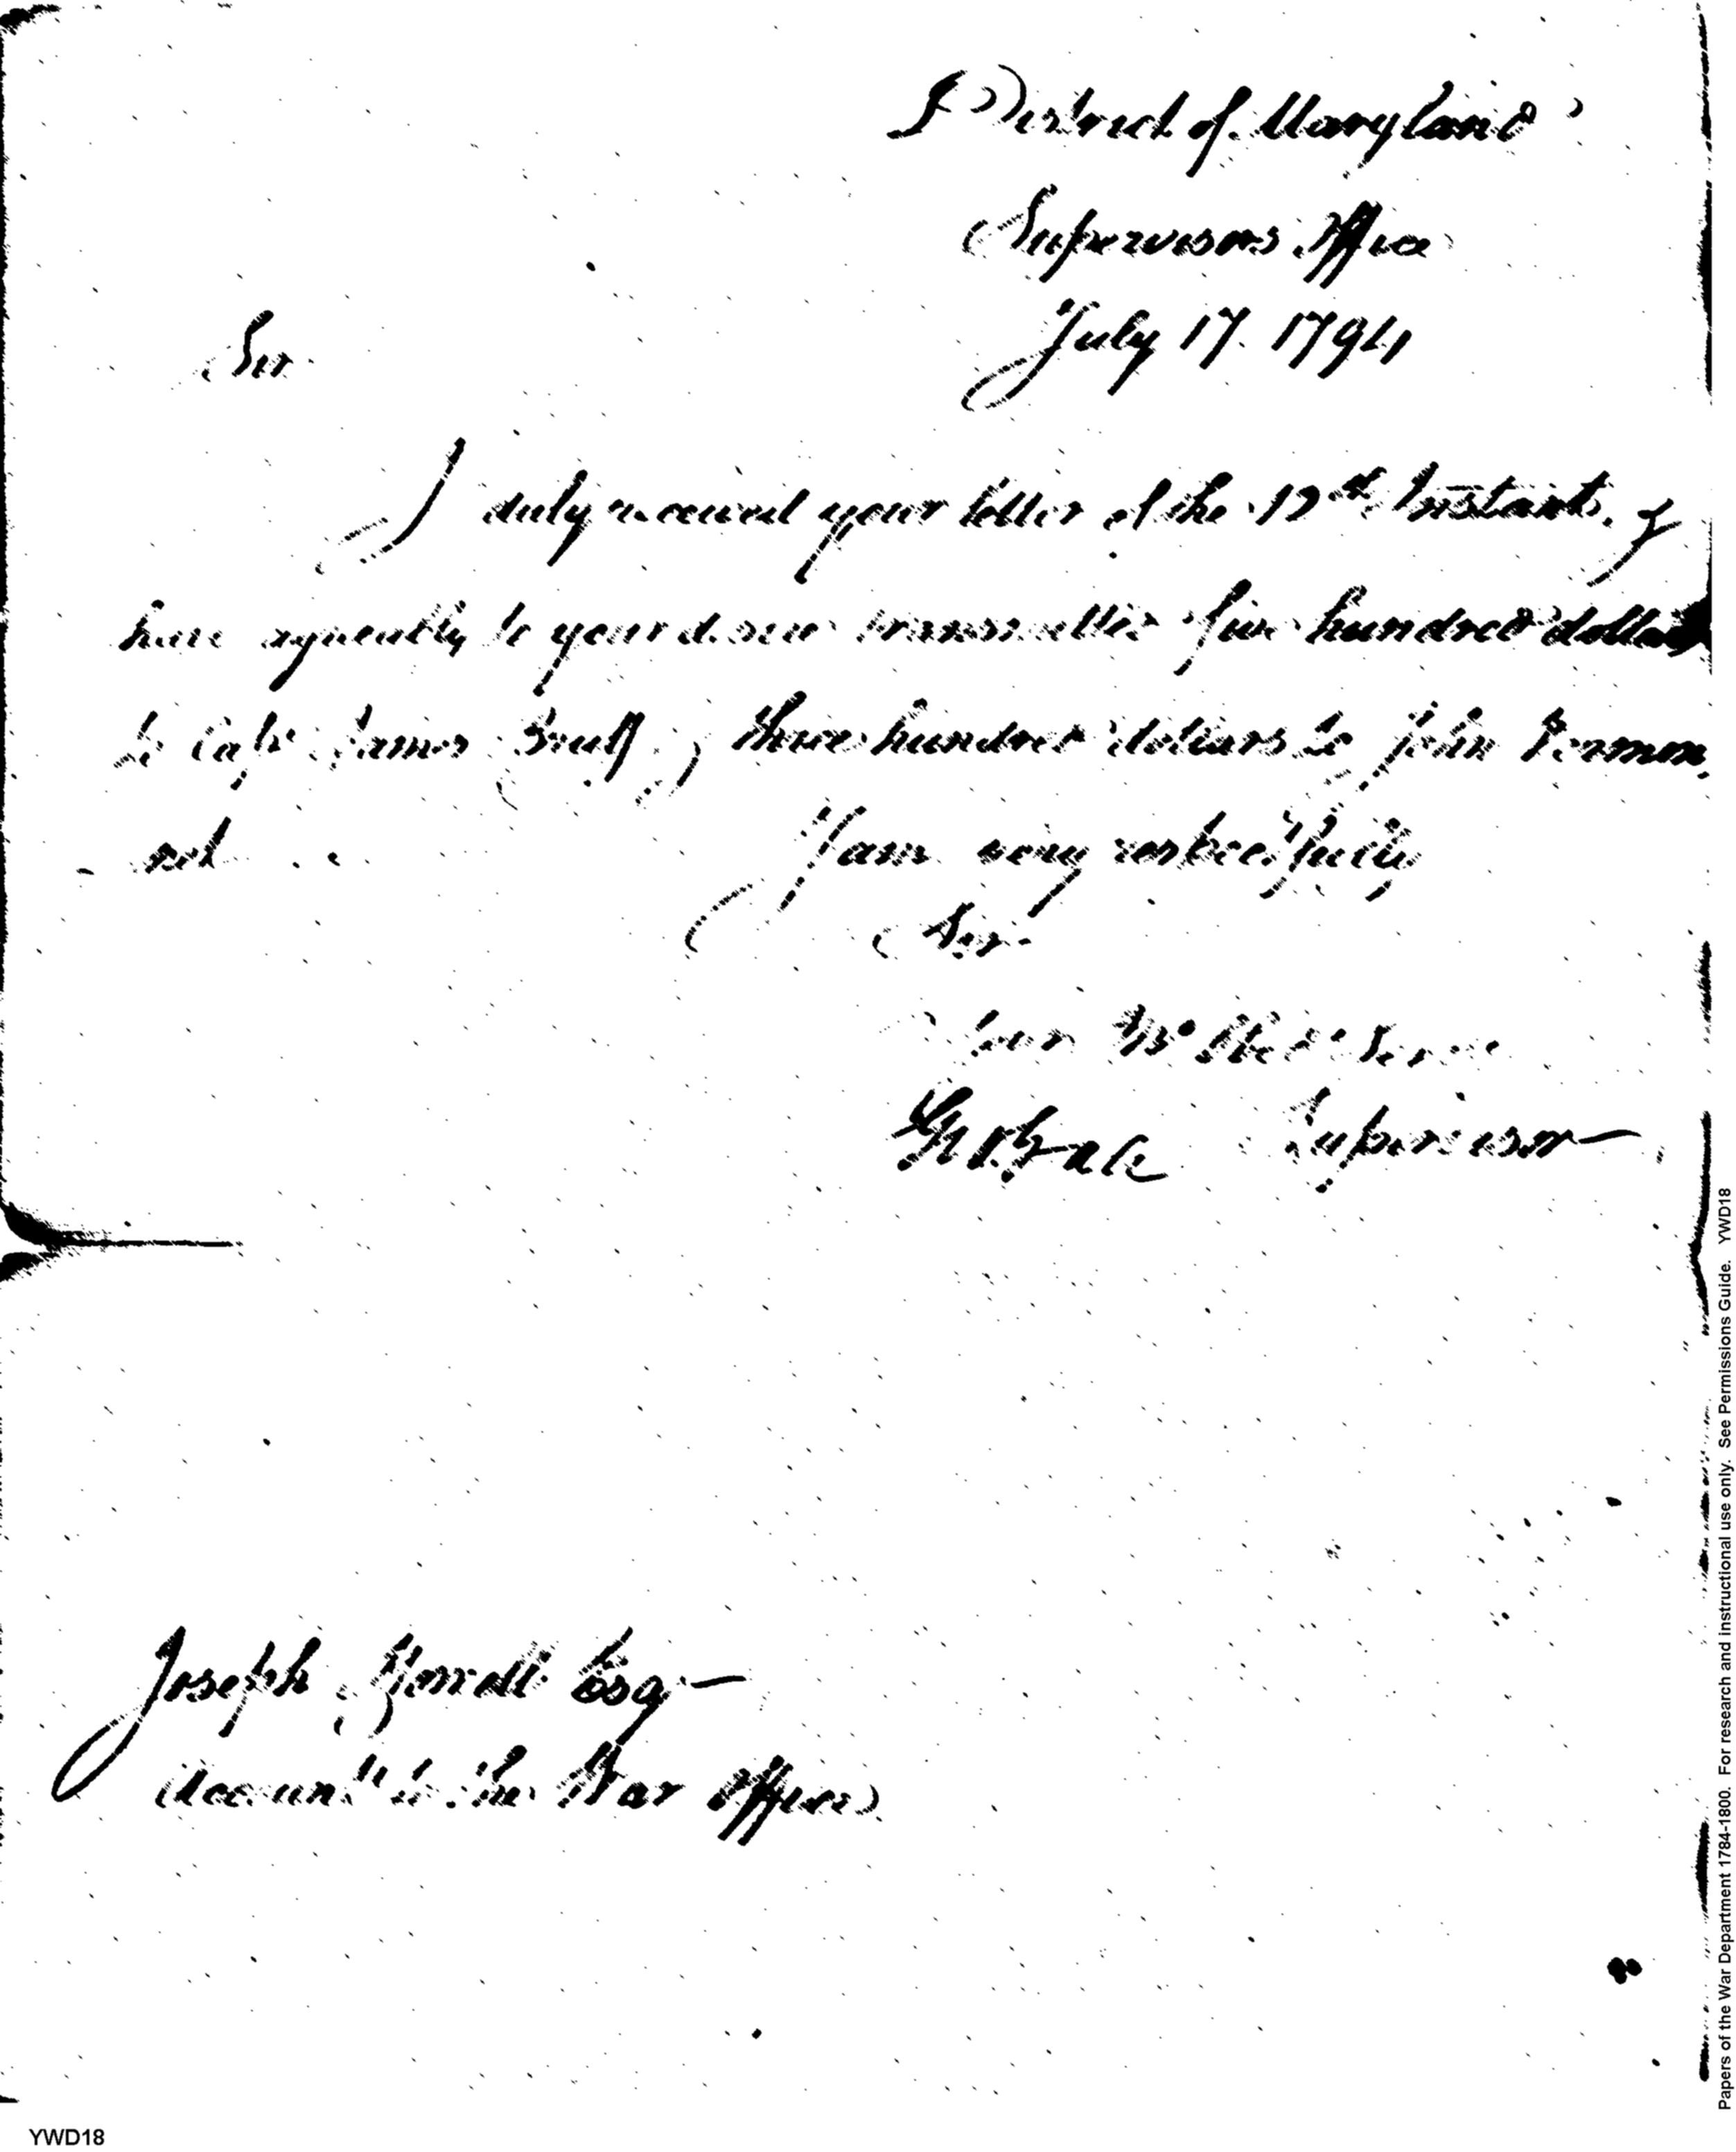 District of Maryland
Supervisors Office
July 17. 1794
Sir
I duly received your letter of the 12th Instant, &
have agreeably to your desire transmitted five hundred dollars
to Capt James Bruff, & three hundred dollars to John
I am very respectfully
Sir
your Mo Obed Serv
Geo Gale Supervisor
Joseph Howell Esq
Accountt to the War Office
YWD18
Papers of the War Department 1784-1800. For research and instructional use only. See Permissions Guide. YWD18